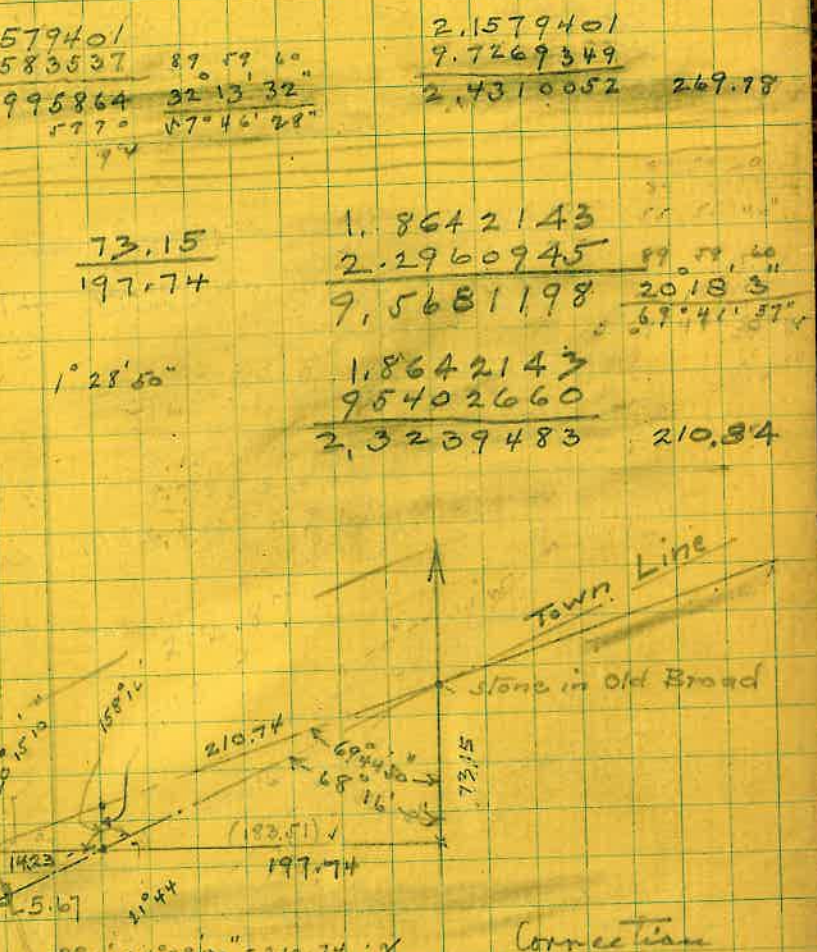 579401
583537
995864
5770
89 59 60
32° 13' 32"
57° 46' 28"
2.1579401
9.7269349
2.4310052 269.78
73.15
197.74
1.8642143
2.2960945
9.5681198
89 59 60
20° 18' 3"
69° 41' 57"
1° 28' 50"
1.8642143
95402660
2,3239483 210.84
Town Line
stone in Old Broad
158° 16'
210.74
68° 16'
73.15
(183.51) ✓
197.74
14.23
21° 44
5.67
Correction